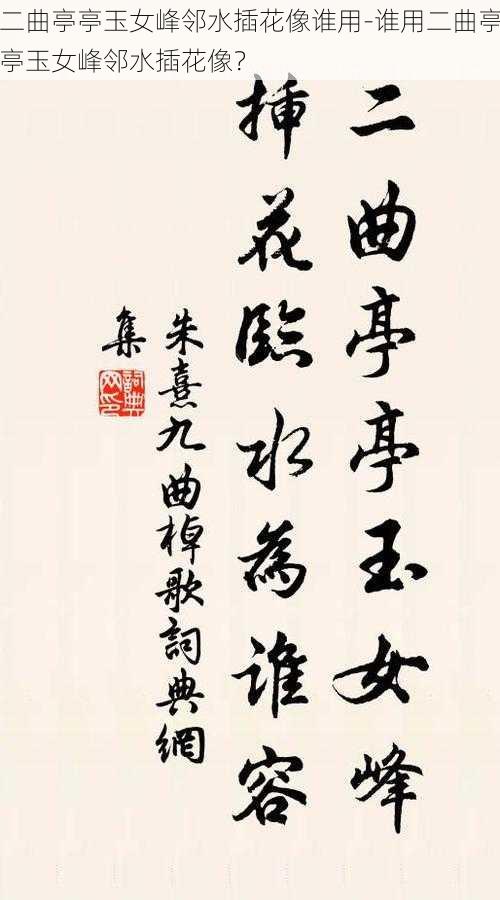 二曲亭亭玉女峰邻水插花像谁用-谁用二曲亭
亭玉女峰邻水插花像？
二曲亭亭玉女峰
挿花臨水為誰容
朱熹九曲棹歌詞典網
集
詞典
网印